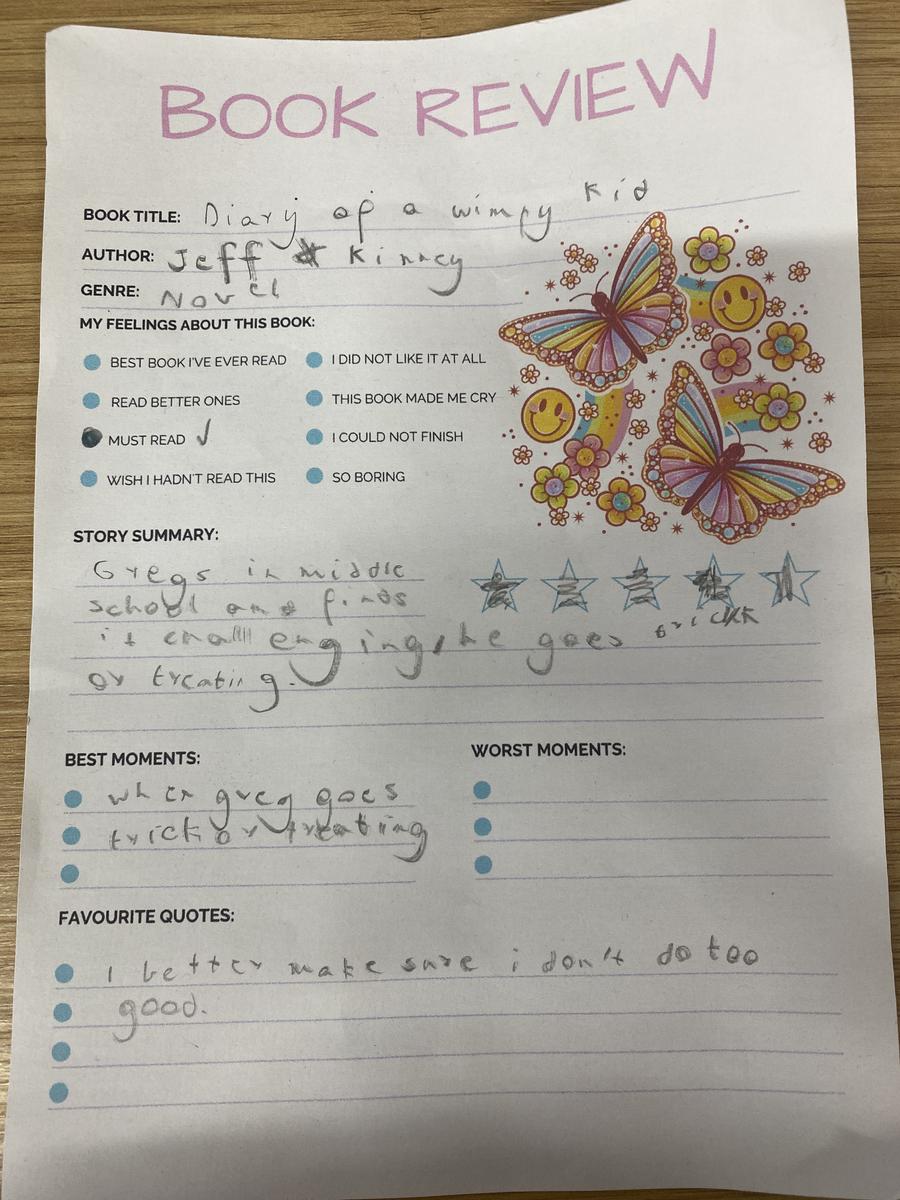 BOOK REVIEW
BOOK TITLE: Diary of a wimpy kid
AUTHOR: Jeff Kinney
GENRE: Novel
MY FEELINGS ABOUT THIS BOOK:
BEST BOOK I'VE EVER READ I DID NOT LIKE IT AT ALL
READ BETTER ONES THIS BOOK MADE ME CRY
MUST READ ✓ I COULD NOT FINISH
WISH I HADN'T READ THIS SO BORING
STORY SUMMARY:
Gregs in middle
school and finds
it challenging, he goes trick
or treating.
BEST MOMENTS: WORST MOMENTS:
when greg goes
trick or treating
FAVOURITE QUOTES:
I better make sure i don't do too
good.